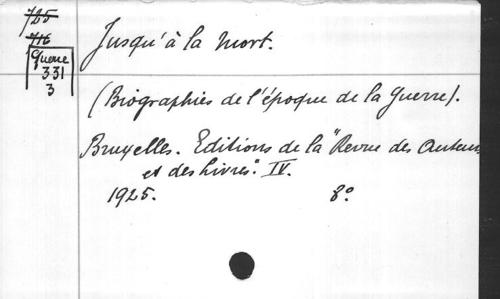 725
716
Guerre
331
3
Jusqu'à la mort.
(Biographies de l'époque de la Guerre).
Bruxelles. Editions de la "Revue des Auteurs
et des Livres". IV.
1925. 8°